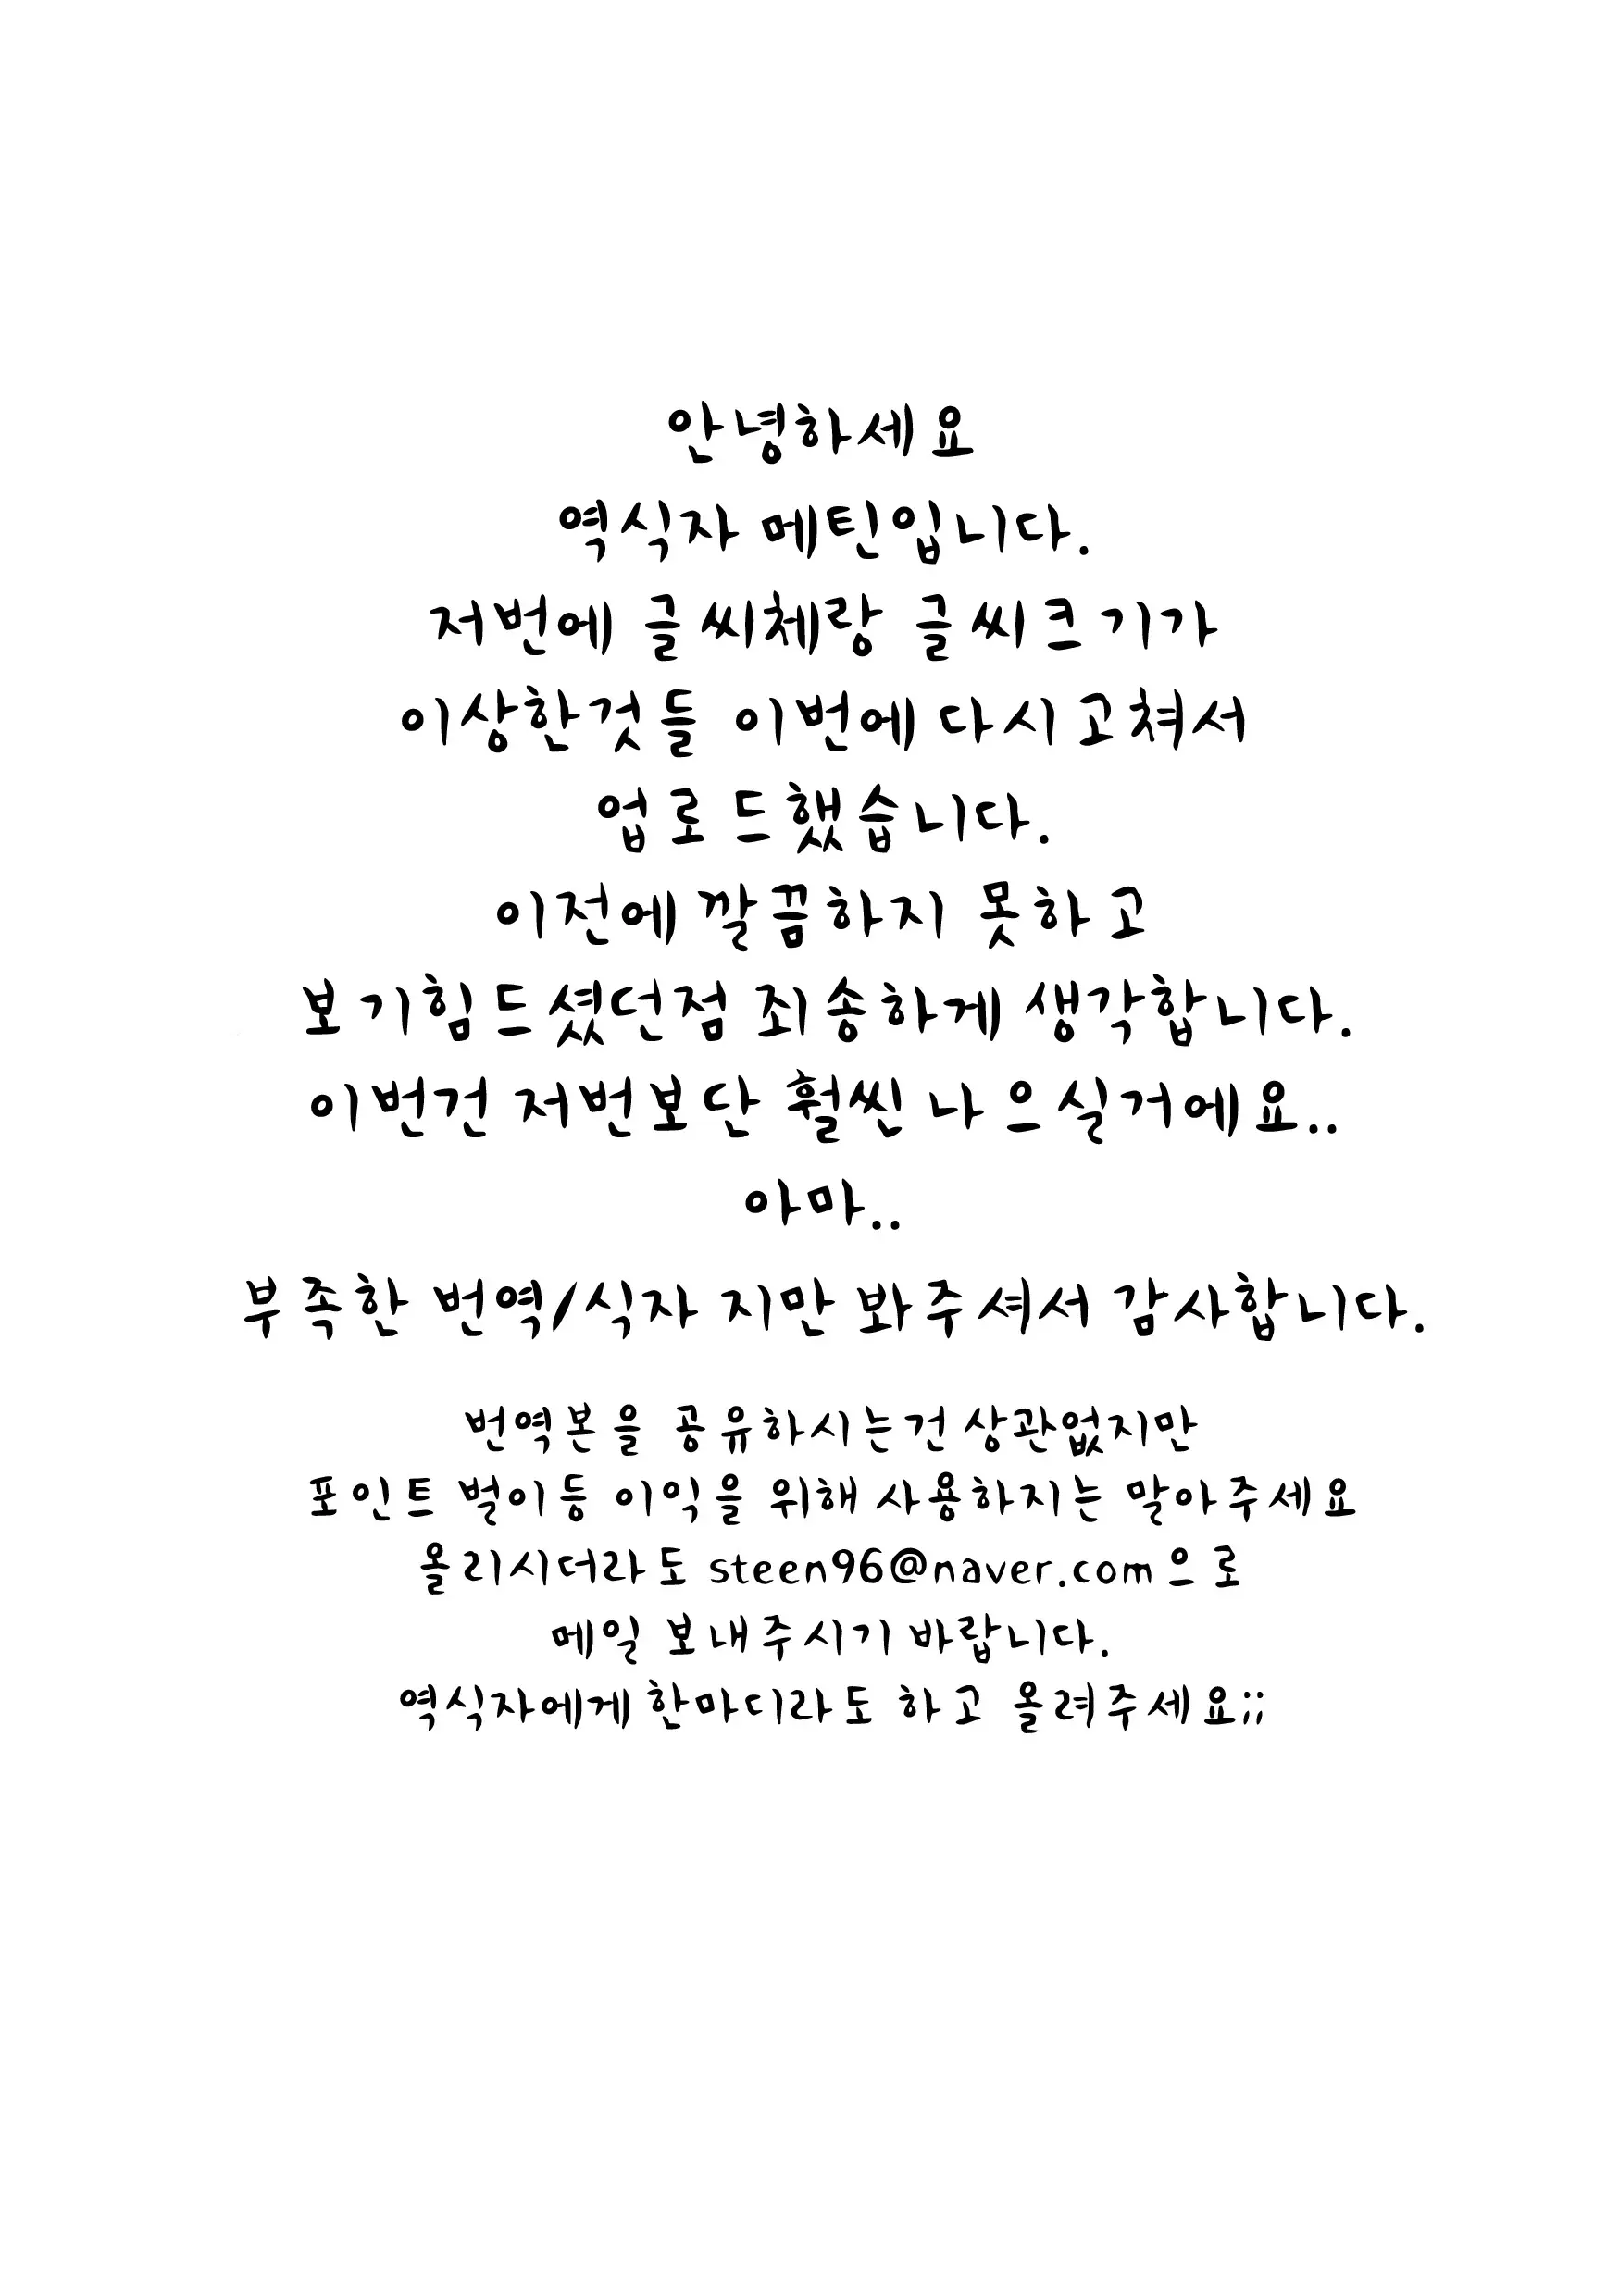 안녕하세요
역식자 메틴입니다.
저번에 글씨체랑 글씨크기가
이상한것들 이번에 다시 고쳐서
업로드했습니다.
이전에 깔끔하지 못하고
보기힘드셨던점 죄송하게 생각합니다.
이번건 저번보단 훨씬 나으실거에요..
아마..
부족한 번역/식자 지만 봐주셔서 감사합니다.
번역본을 공유하시는건 상관없지만
포인트 벌이등 이익을 위해 사용하지는 말아주세요
올리시더라도 steen96@naver.com으로
메일 보내주시기 바랍니다.
역식자에게 한마디라도 하고 올려주세요;;